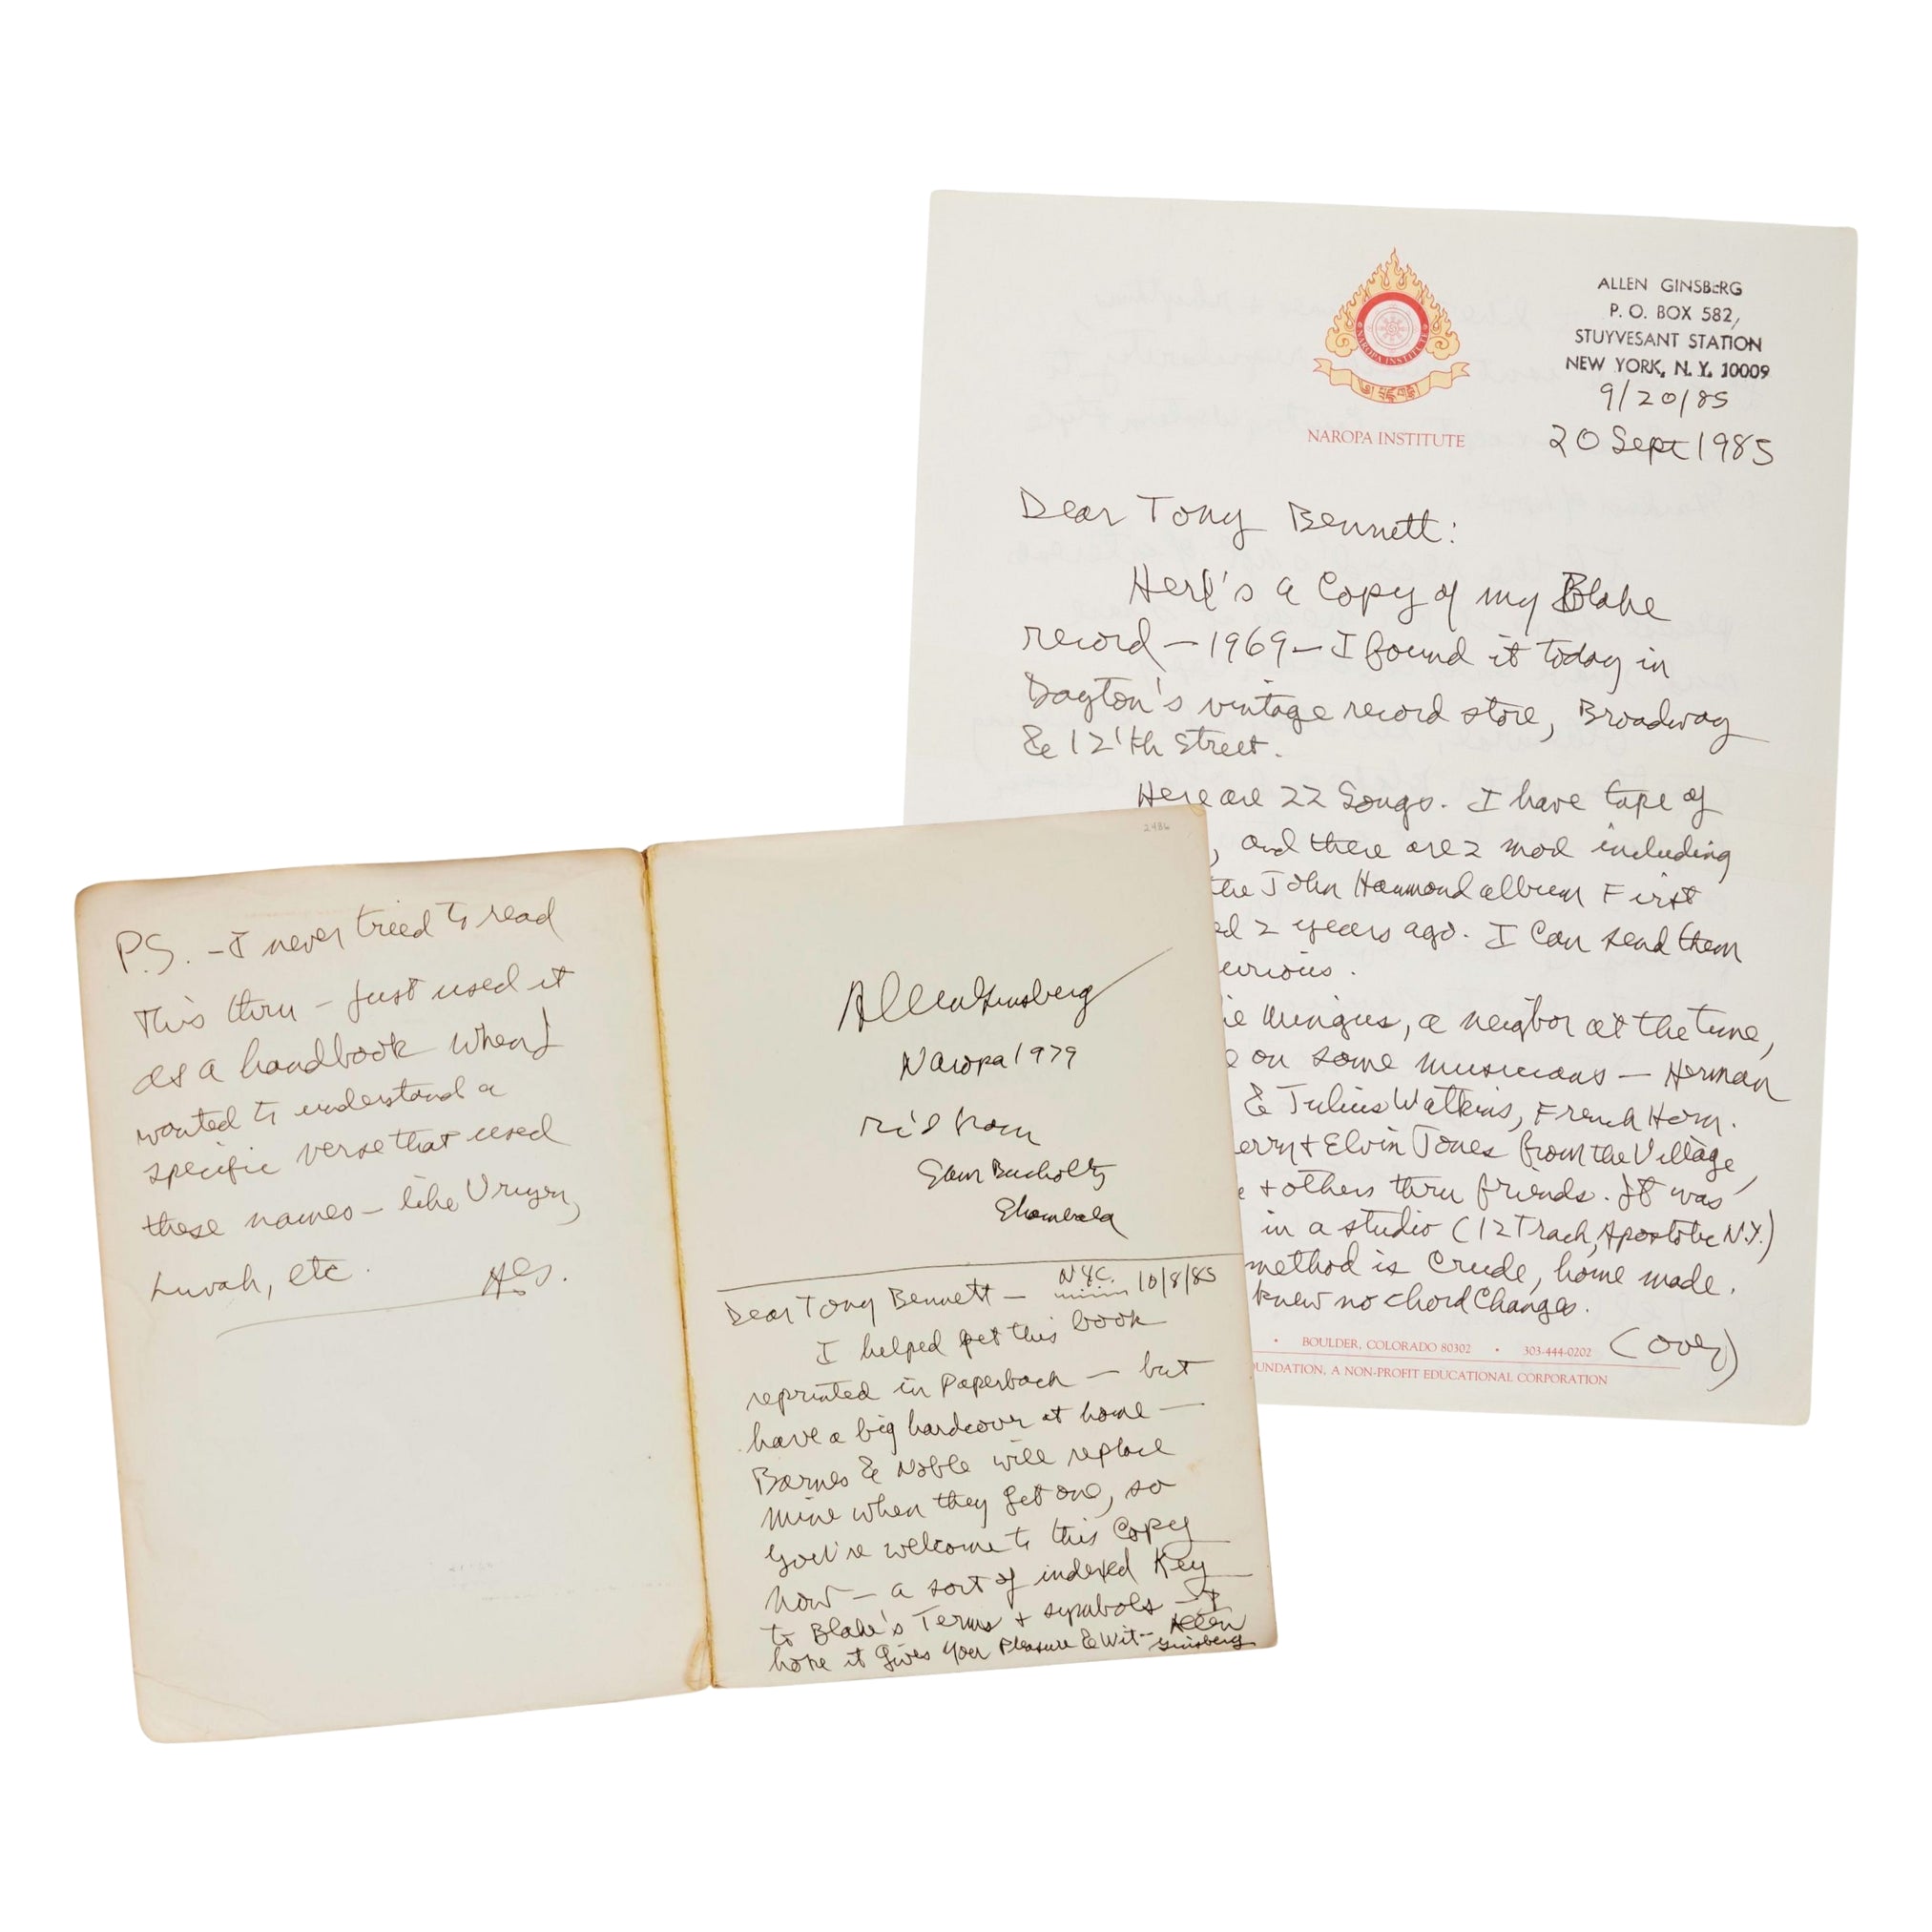 NAROPA INSTITUTE
NAROPA INSTITUTE
ALLEN GINSBERG
P. O. BOX 582,
STUYVESANT STATION
NEW YORK, N. Y. 10009
9/20/85
20 Sept 1985
Dear Tony Bennett:
Here's a Copy of my Blake
record – 1969 – I found it today in
Dayton's vintage record store, Broadway
& 12'th Street.
Here are 22 Songs. I have tape of
, and there are 2 mod including
the John Hammond album First
ed 2 years ago. I can send them
urious.
ie Mingus, a neigbor at the time,
e on some musicians — Herman
& Julius Watkins, French Horn.
erry + Elvin Jones from the Village,
e + others thru friends. It was
in a studio (12 Track, Apostolic N.Y.)
method is Crude, home made.
knew no chord Changes.
(over)
• BOULDER, COLORADO 80302 • 303-444-0202
UNDATION, A NON-PROFIT EDUCATIONAL CORPORATION
P.S. – I never tried to read
This thru – just used it
as a handbook when I
wanted to understand a
specific verse that used
these names – like Urizen,
Luvah, etc.
AG.
2486
Allen Ginsberg
Naropa 1979
rc'd from
Sam Bercholtz
Shambala
Dear Tony Bennett – NYC. 10/8/85
I helped get this book
reprinted in Paperback — but
have a big hardcover at home —
Barnes & Noble will replace
mine when they get one, so
You're welcome to this Copy
now – a sort of indexed Key
to Blake's Terms + symbols – I
hope it Gives You Pleasure & Wit – Allen
Ginsberg